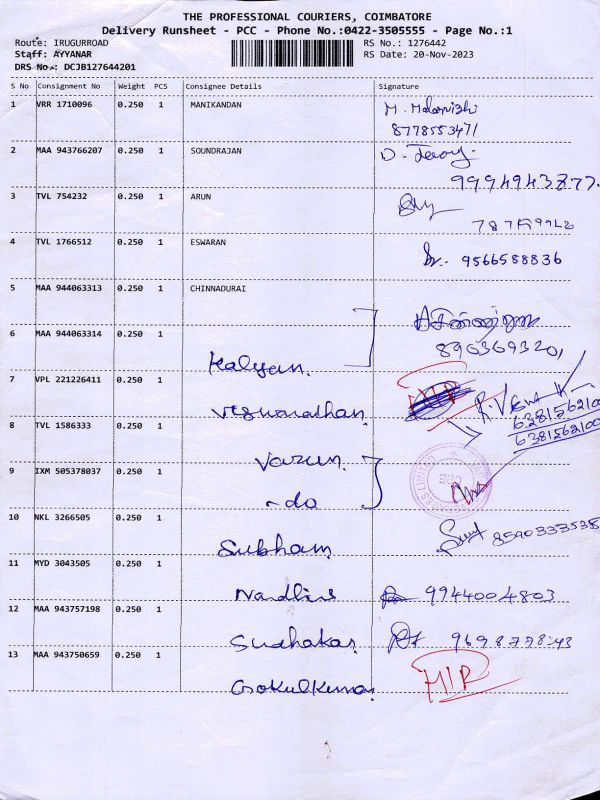 THE PROFESSIONAL COURIERS, COIMBATORE
Delivery Runsheet - PCC - Phone No.:0422-3505555 - Page No.:1
Route: IRUGURROAD RS No.: 1276442
Staff: AYYANAR RS Date: 20-Nov-2023
DRS No.: DCJB127644201
S No Consignment No Weight PCS Consignee Details Signature
1 VRR 1710096 0.250 1 MANIKANDAN
8778553471
2 MAA 943766207 0.250 1 SOUNDRAJAN
9994943877
3 TVL 754232 0.250 1 ARUN
4 TVL 1766512 0.250 1 ESWARAN 9566588836
5 MAA 944063313 0.250 1 CHINNADURAI
6 MAA 944063314 0.250 1 Kalyan. 8903693201
7 VPL 221226411 0.250 1 Viswanathan 6381562100
8 TVL 1586333 0.250 1 Varun 6381562100
9 IXM 505378037 0.250 1 - do
10 NKL 3266505 0.250 1 Subham 8590333538
11 MYD 3043505 0.250 1 9944004803
12 MAA 943757198 0.250 1 Sudhakar
13 MAA 943750659 0.250 1 Gokulkumar